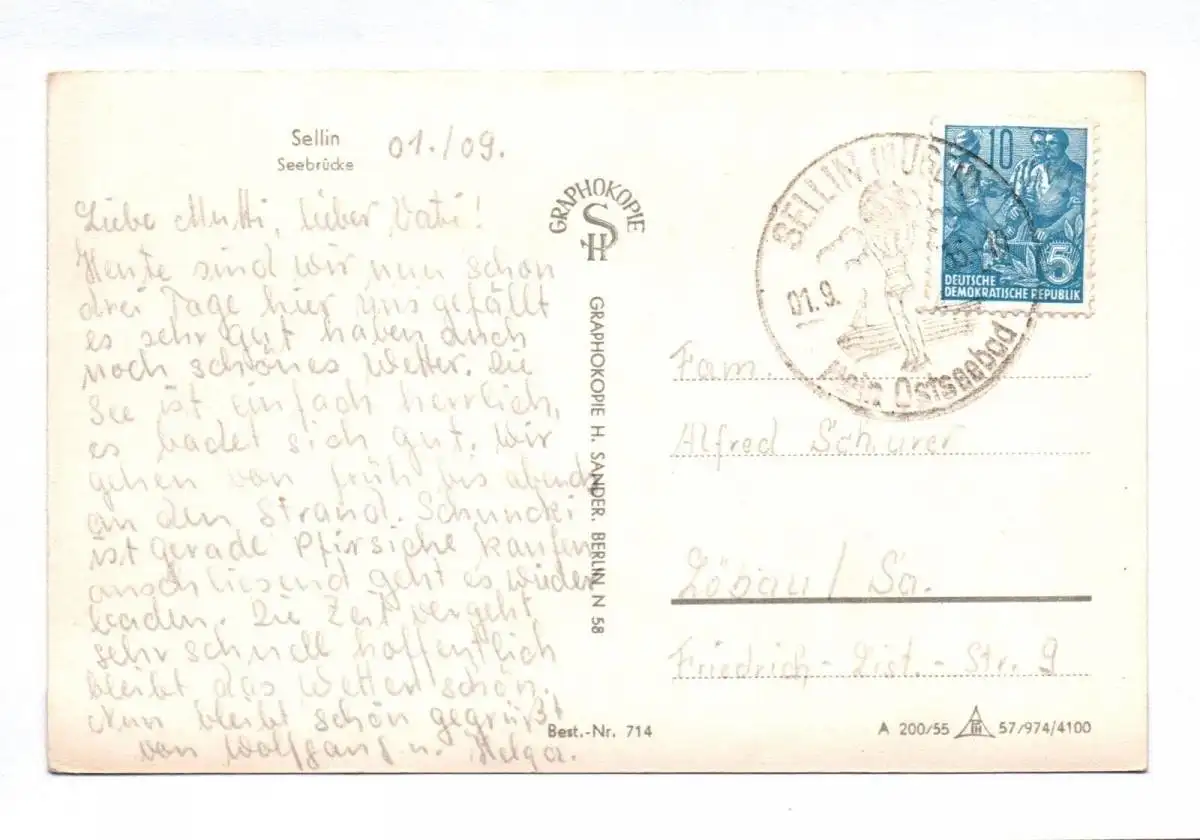 Sellin
Seebrücke
01./09.
Liebe Mutti, lieber Vati!
Heute sind wir nun schon
drei Tage hier uns gefällt
es sehr gut haben auch
noch schönes Wetter. Die
See ist einfach herrlich,
es badet sich gut. Wir
gehen von früh bis abends
an den Strand. Schuncki
ist gerade Pfirsiche kaufen
anschliesend geht es wieder
baden. Die Zeit vergeht
sehr schnell hoffentlich
bleibt das Wetter schön.
Nun bleibt schön gegrüßt
von Wolfgang u. Helga.
GRAPHOKOPIE
H S
GRAPHOKOPIE H. SANDER, BERLIN N 58
Best.-Nr. 714
SELLIN (RÜGEN)
01.9.
Ostseebad
10
5
DEUTSCHE
DEMOKRATISCHE REPUBLIK
Fam.
Alfred Schurer
Löbau / Sa.
Friedrich-List.-Str. 9
A 200/55 57/974/4100